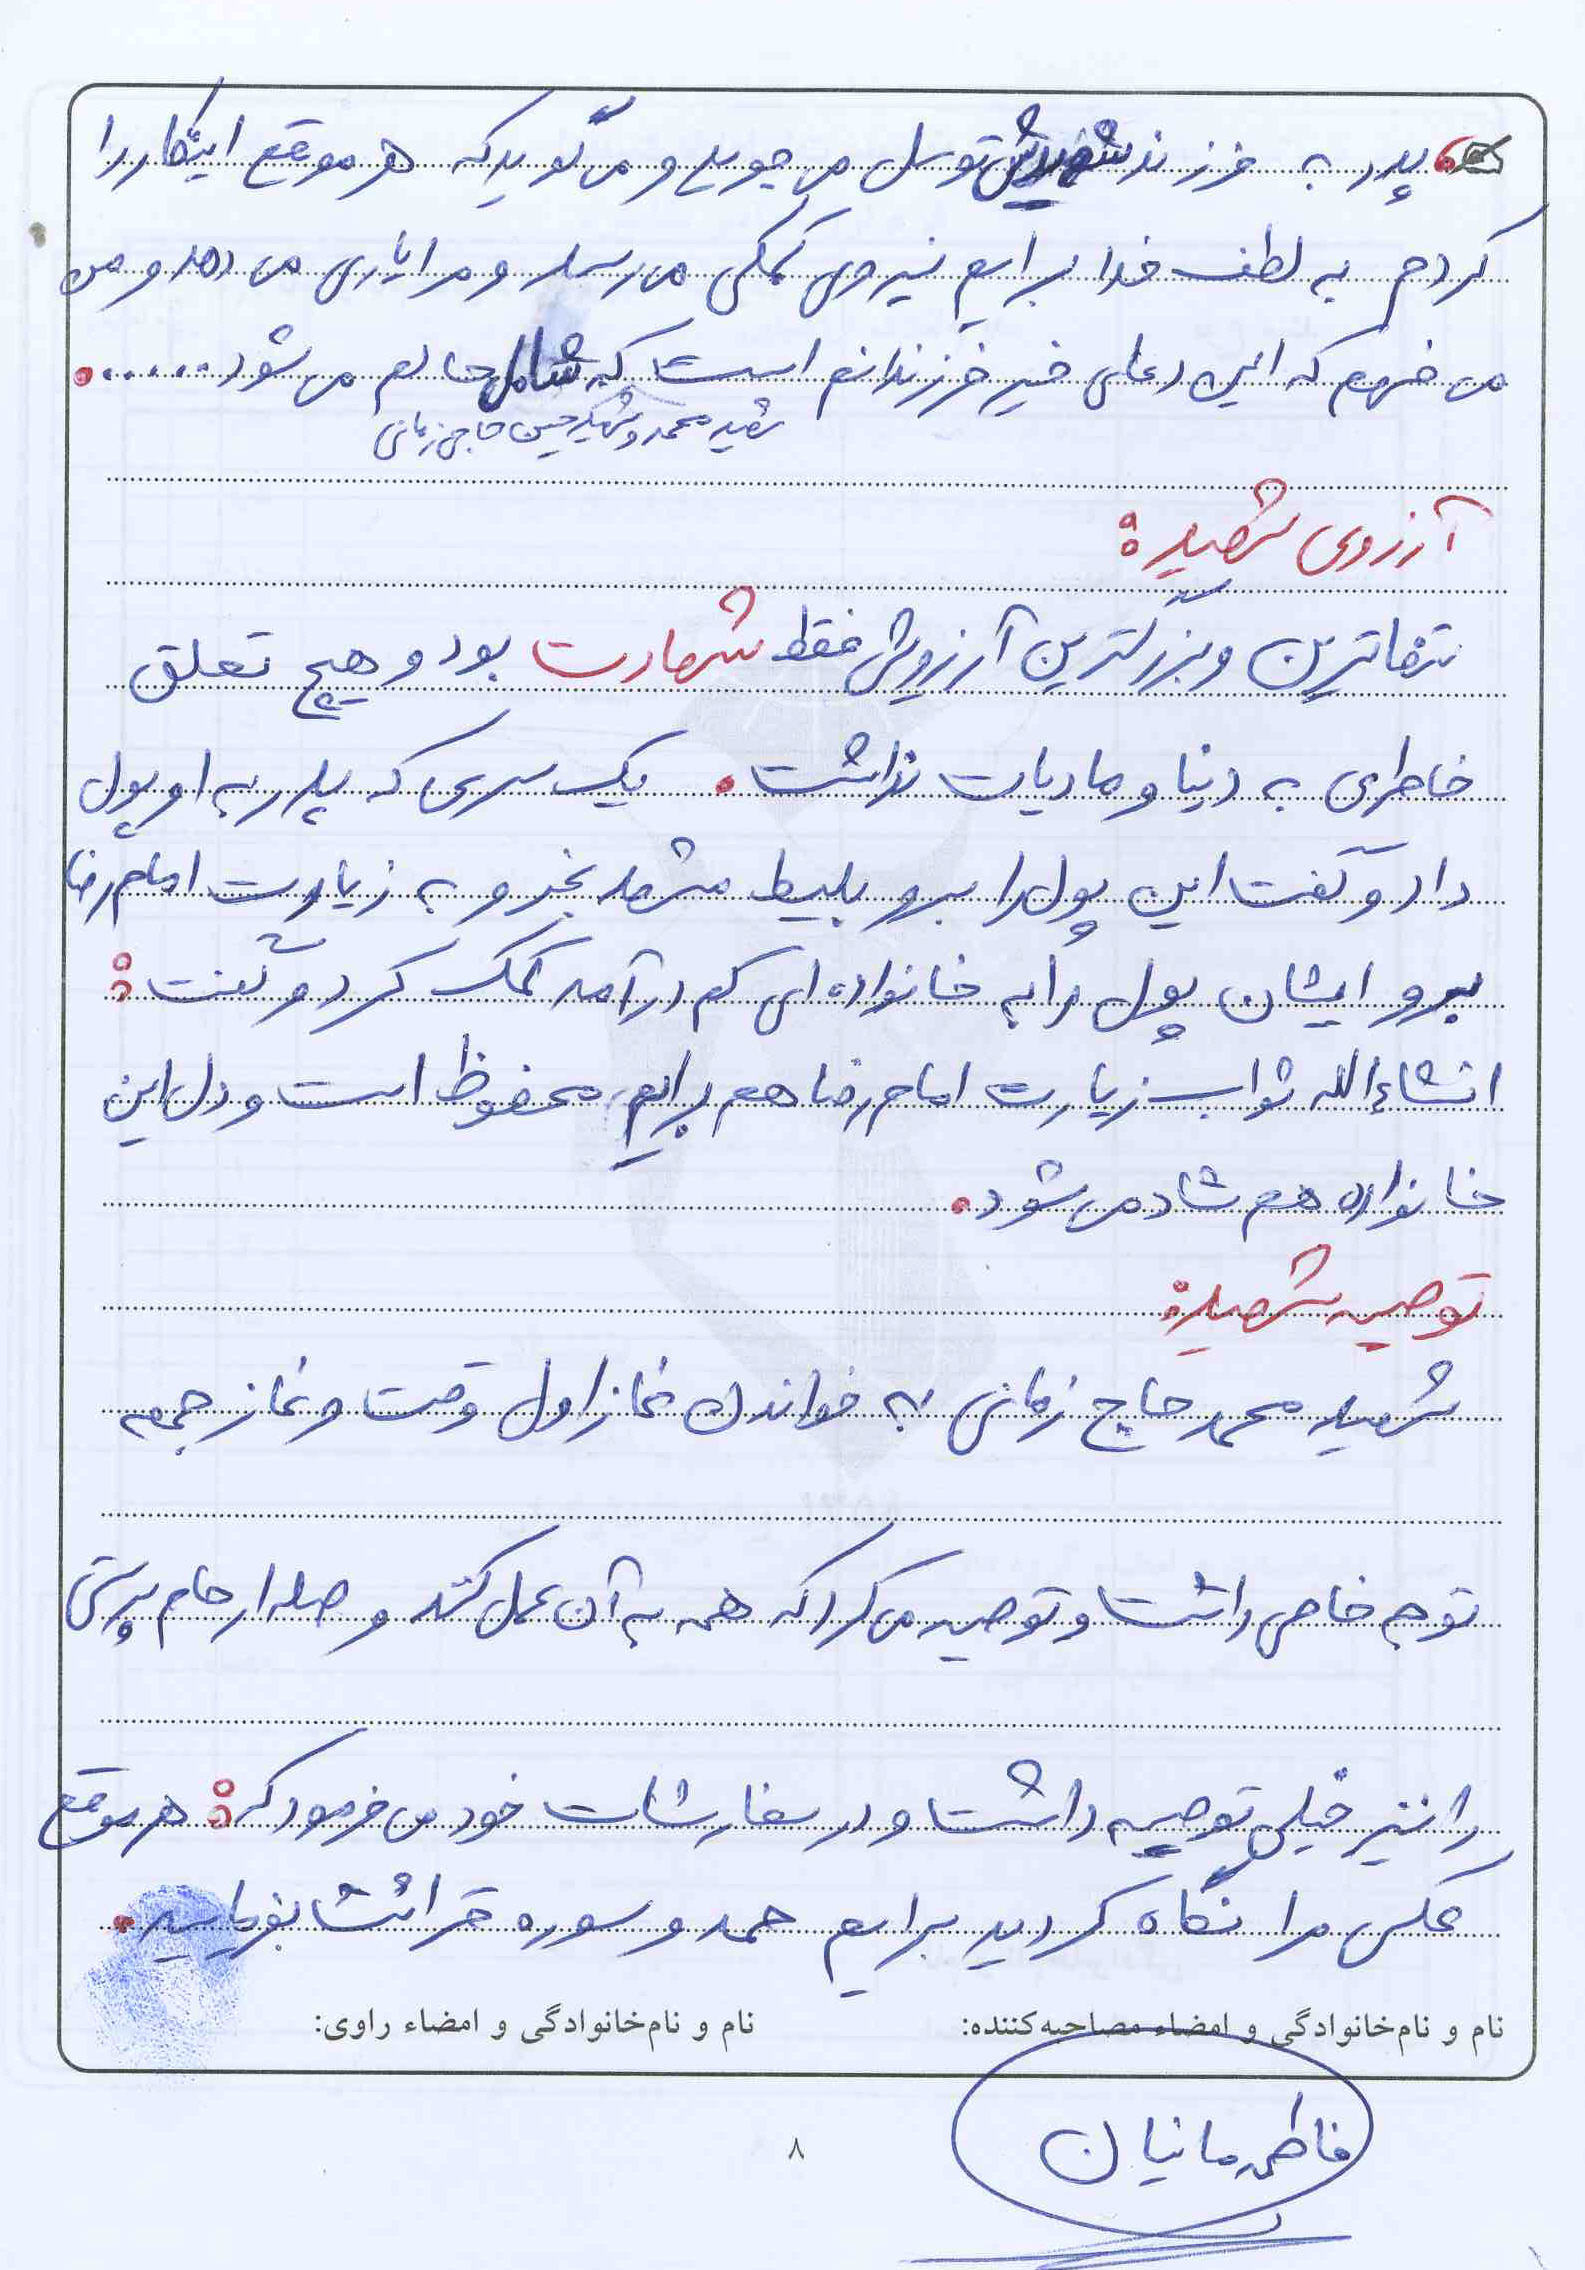 پدر به فرزند شهیدش توسل می جوید و می گوید که هر موقع اینکار را
کردم به لطف خدا برایم نیروی کمکی می رسد و مرا یاری می دهد و من
می فهمم که این دعای خیر فرزندانم است که شامل حالم می شود ......
شهید محمد و شهید حسین حاجی زمانی
آرزوی شهید:
تنهاترین و بزرگترین آرزویش فقط شهادت بود و هیچ تعلق
خاطری به دنیا و مادیات نداشت. یک سری که پدر به او پول
داد و گفت این پول را ببر و بلیط مشهد بخر و به زیارت امام رضا
برو ایشان پول را به خانواده ای کم درآمد کمک کرد و گفت:
انشاءالله ثواب زیارت امام رضا هم برایم محفوظ است و دل این
خانواده هم شاد می شود.
توصیه شهید:
شهید محمد حاج زمانی به خواندن نماز اول وقت و نماز جمعه
توجه خاصی داشت و توصیه می کرد که همه به آن عمل کنند و صله ارحام پرستی
را نیز خیلی توصیه داشت و در سفارشات خود می فرمود که: هر موقع
عکس مرا نگاه کردید برایم حمد و سوره قرائت بفرمایید.
نام و نام‌خانوادگی و امضاء مصاحبه‌کننده: نام و نام‌خانوادگی و امضاء راوی:
فاطمه مانیان
۸